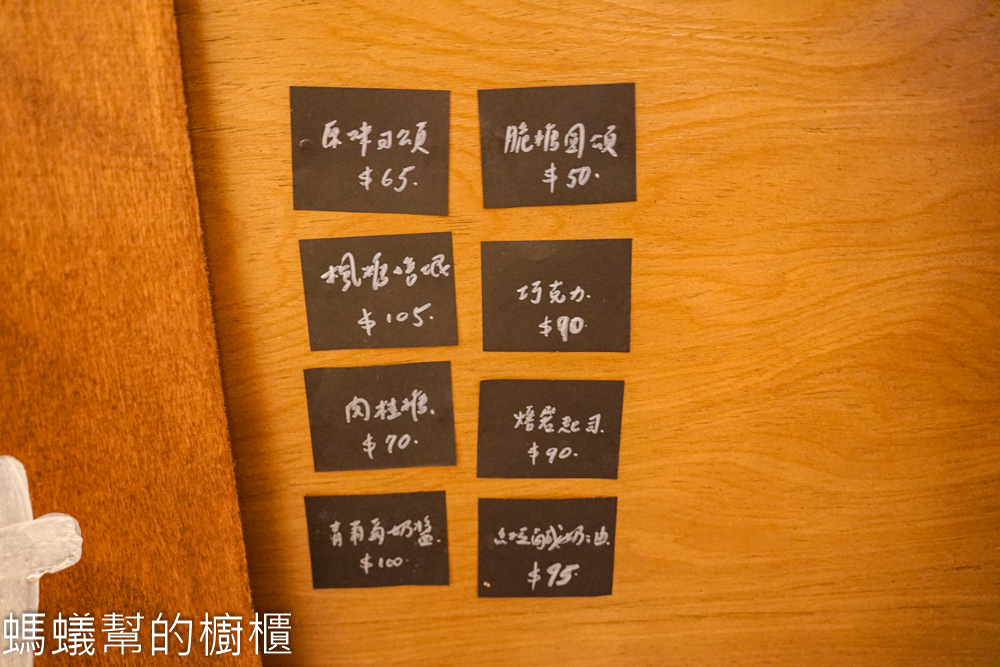 原味可頌
$65.
脆糖圓頌
$50.
楓糖培根
$105.
巧克力.
$90
肉桂捲.
$70.
煙燻起司.
$90.
青葡萄奶醬.
$100
鹹奶油.
$95.
螞蟻幫的櫥櫃